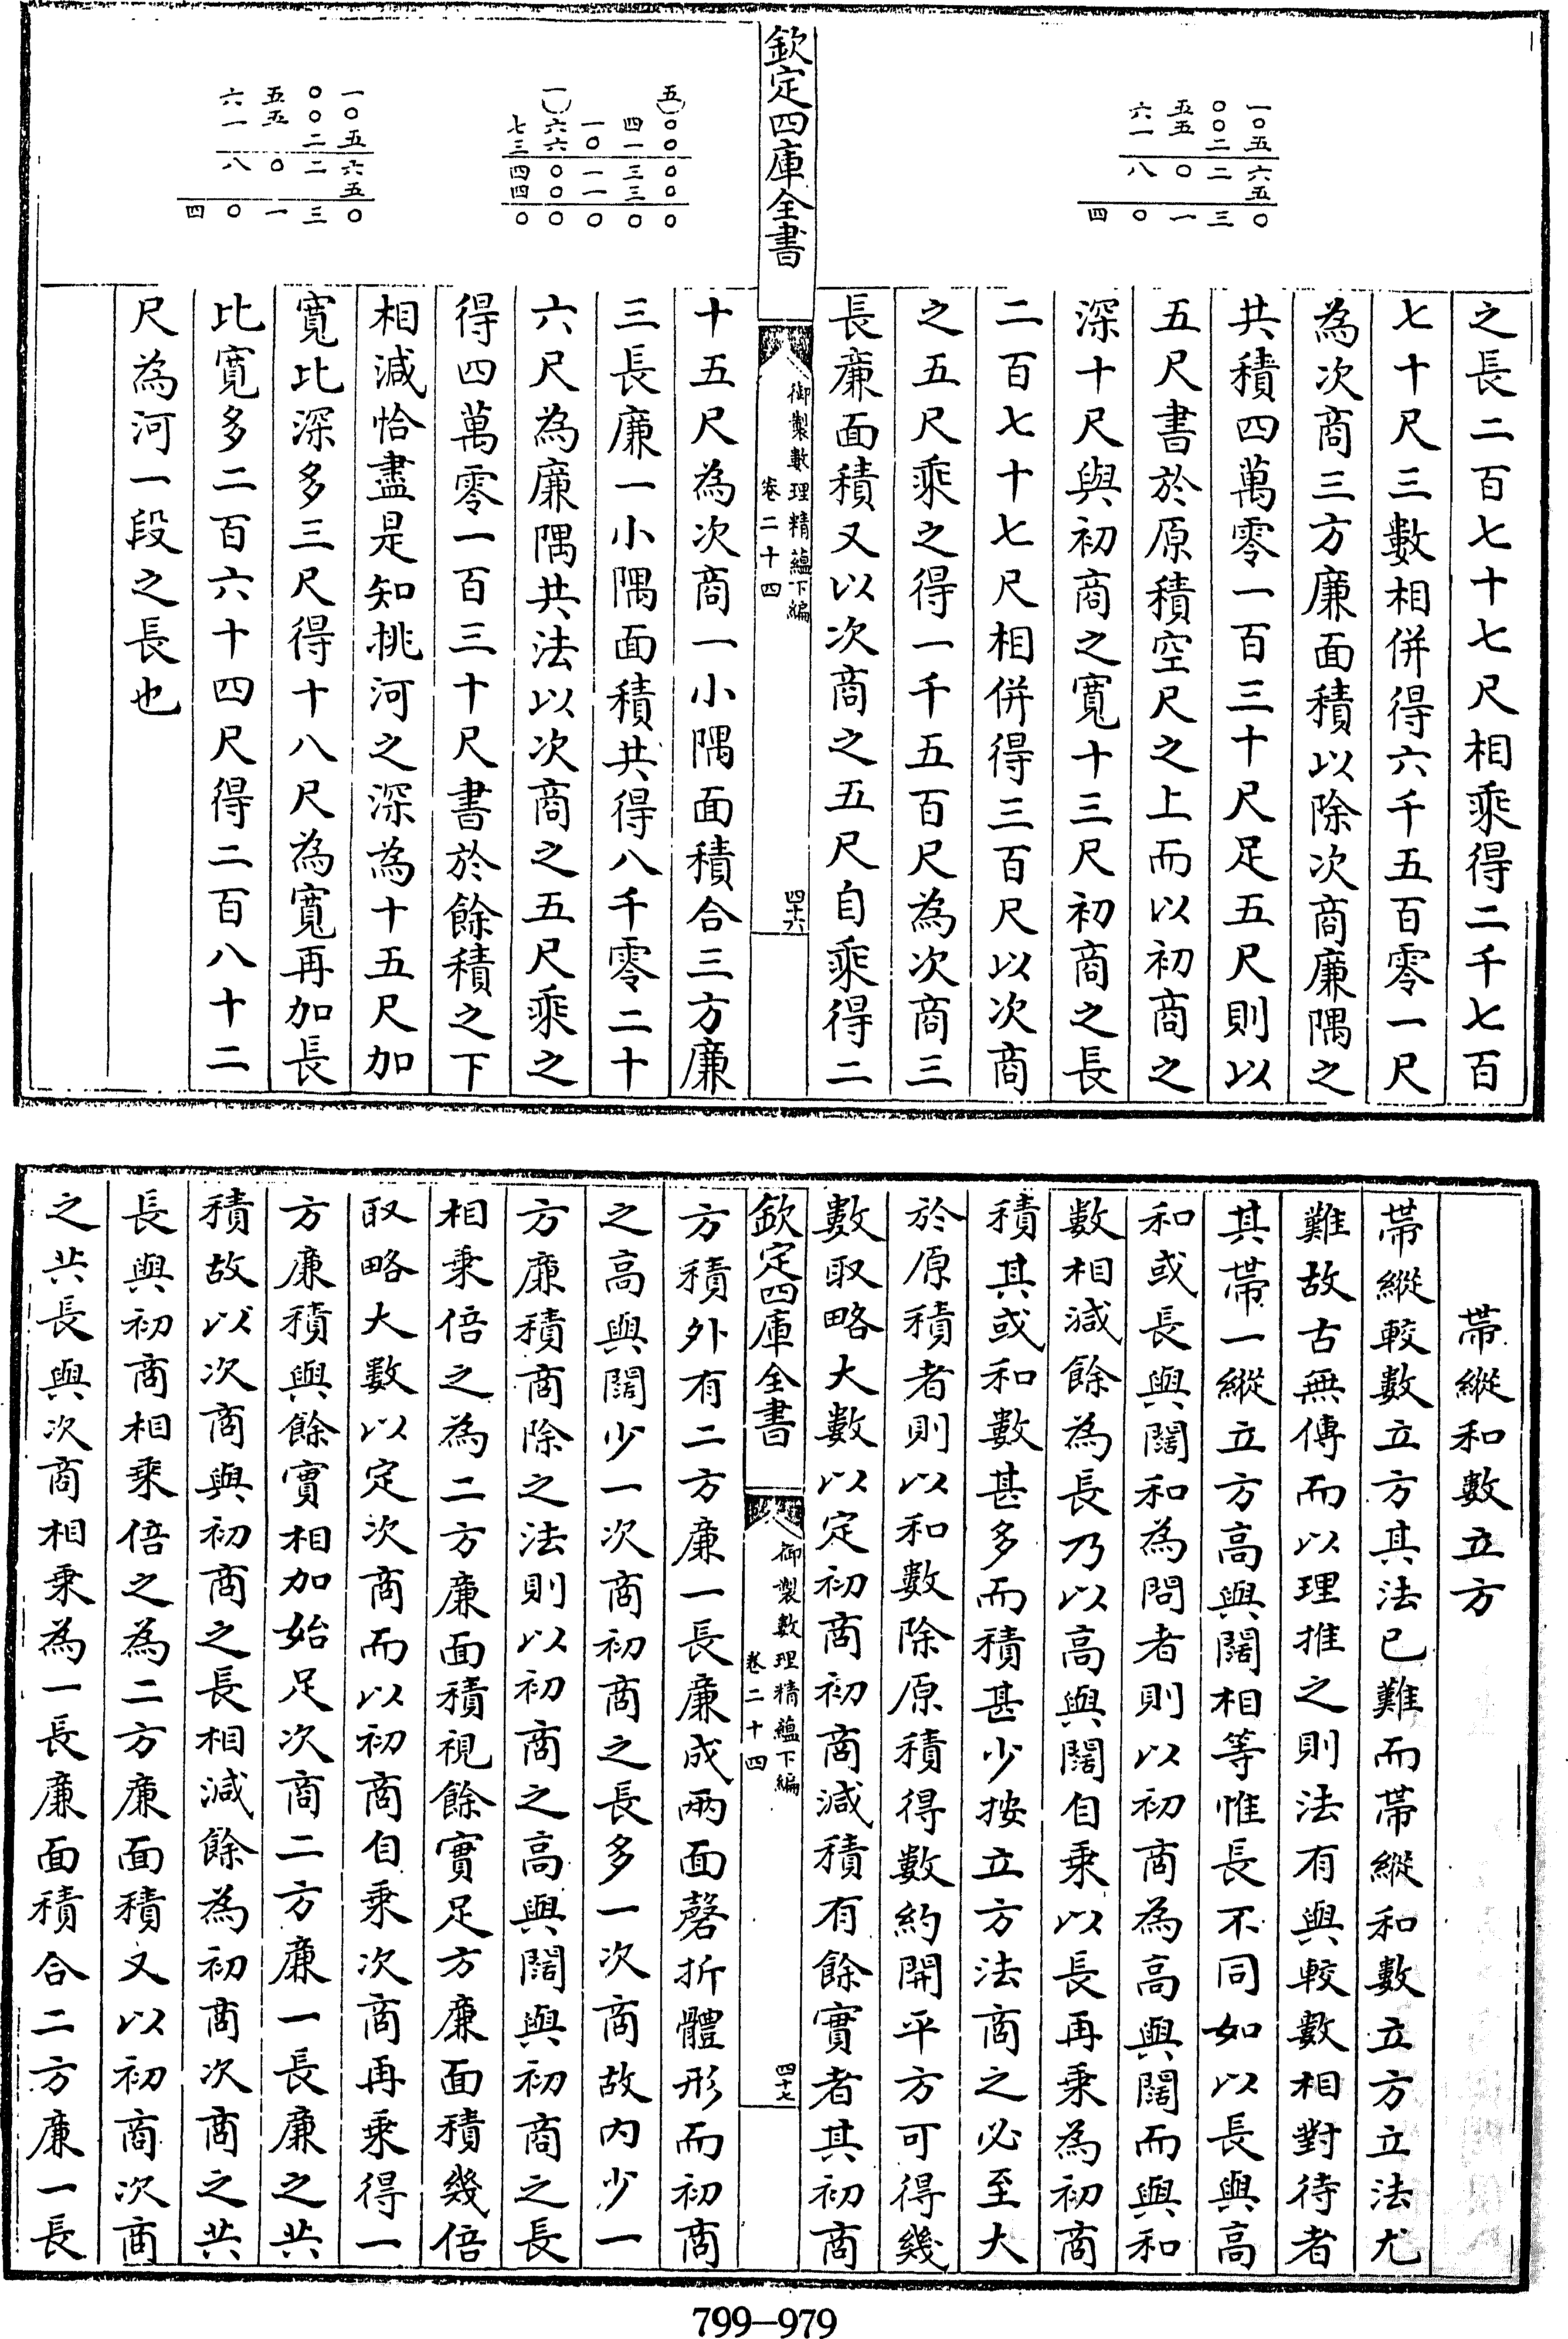 一〇五六五〇
〇〇二二三
五五〇一
六一八〇
四
之長二百七十七尺相乘得二千七百
七十尺三數相併得六千五百零一尺
為次商三方廉面積以除次商廉隅之
共積四萬零一百三十尺足五尺則以
五尺書於原積空尺之上而以初商之
深十尺與初商之寬十三尺初商之長
二百七十七尺相併得三百尺以次商
之五尺乘之得一千五百尺為次商三
長廉面積又以次商之五尺自乘得二
欽定四庫全書
御製數理精蘊下編
卷二十四
四十六
五〇〇〇〇〇
四一三三〇
一〇一一〇
一六六〇〇〇
七三四四〇
一〇五六五〇
〇〇二二三
五五〇一
六一八〇
四
十五尺為次商一小隅面積合三方廉
三長廉一小隅面積共得八千零二十
六尺為廉隅共法以次商之五尺乘之
得四萬零一百三十尺書於餘積之下
相減恰盡是知挑河之深為十五尺加
寬比深多三尺得十八尺為寬再加長
比寬多二百六十四尺得二百八十二
尺為河一段之長也
帶縱和數立方
帶縱較數立方其法已難而帶縱和數立方立法尤
難故古無傳而以理推之則法有與較數相對待者
其帶一縱立方高與闊相等惟長不同如以長與高
和或長與闊和為問者則以初商為高與闊而與和
數相減餘為長乃以高與闊自乘以長再乘為初商
積其或和數甚多而積甚少按立方法商之必至大
於原積者則以和數除原積得數約開平方可得幾
數取略大數以定初商初商減積有餘實者其初商
欽定四庫全書
御製數理精蘊下編
卷二十四
四十七
方積外有二方廉一長廉成兩面磬折體形而初商
之高與闊少一次商初商之長多一次商故內少一
方廉積商除之法則以初商之高與闊與初商之長
相乘倍之為二方廉面積視餘實足方廉面積幾倍
取略大數以定次商而以初商自乘次商再乘得一
方廉積與餘實相加始足次商二方廉一長廉之共
積故以次商與初商之長相減餘為初商次商之共
長與初商相乘倍之為二方廉面積又以初商次商
之共長與次商相乘為一長廉面積合二方廉一長
799-979